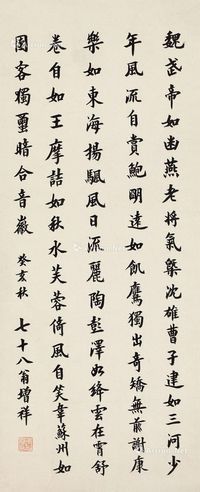 魏武帝如幽燕老將氣槩沈雄曹子建如三河少
年風流自賞鮑明遠如飢鷹獨出奇矯無前謝康
樂如東海揚颿風日流麗陶彭澤如絳雲在霄舒
卷自如王摩詰如秋水芙蓉倚風自笑韋蘇州如
園客獨繭暗合音徽 癸亥秋 七十八翁增祥